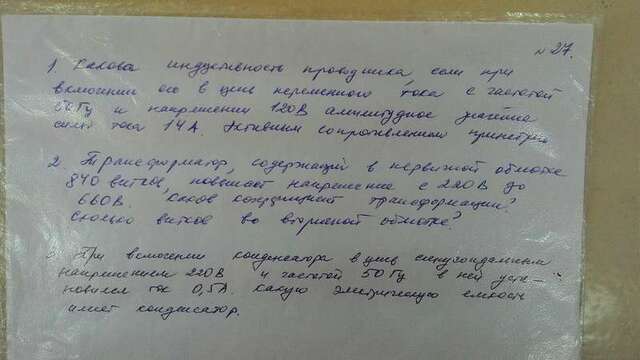 № 27.
1. Какова индуктивность проводника, если при
включении его в цепь переменного тока с частотой
50 Гц и напряжении 120 В амплитудное значение
силы тока 14 А. Активным сопротивлением
2. Трансформатор, содержащий в первичной обмотке
840 витков, повышает напряжение с 220 В до
660 В. Каков коэффициент трансформации?
Сколько витков во вторичной обмотке?
3. При включении конденсатора в цепь с синусоидальным
напряжением 220 В и частотой 50 Гц в ней уста-
новился ток 0,5 А. Какую электрическую емкость
имеет конденсатор.